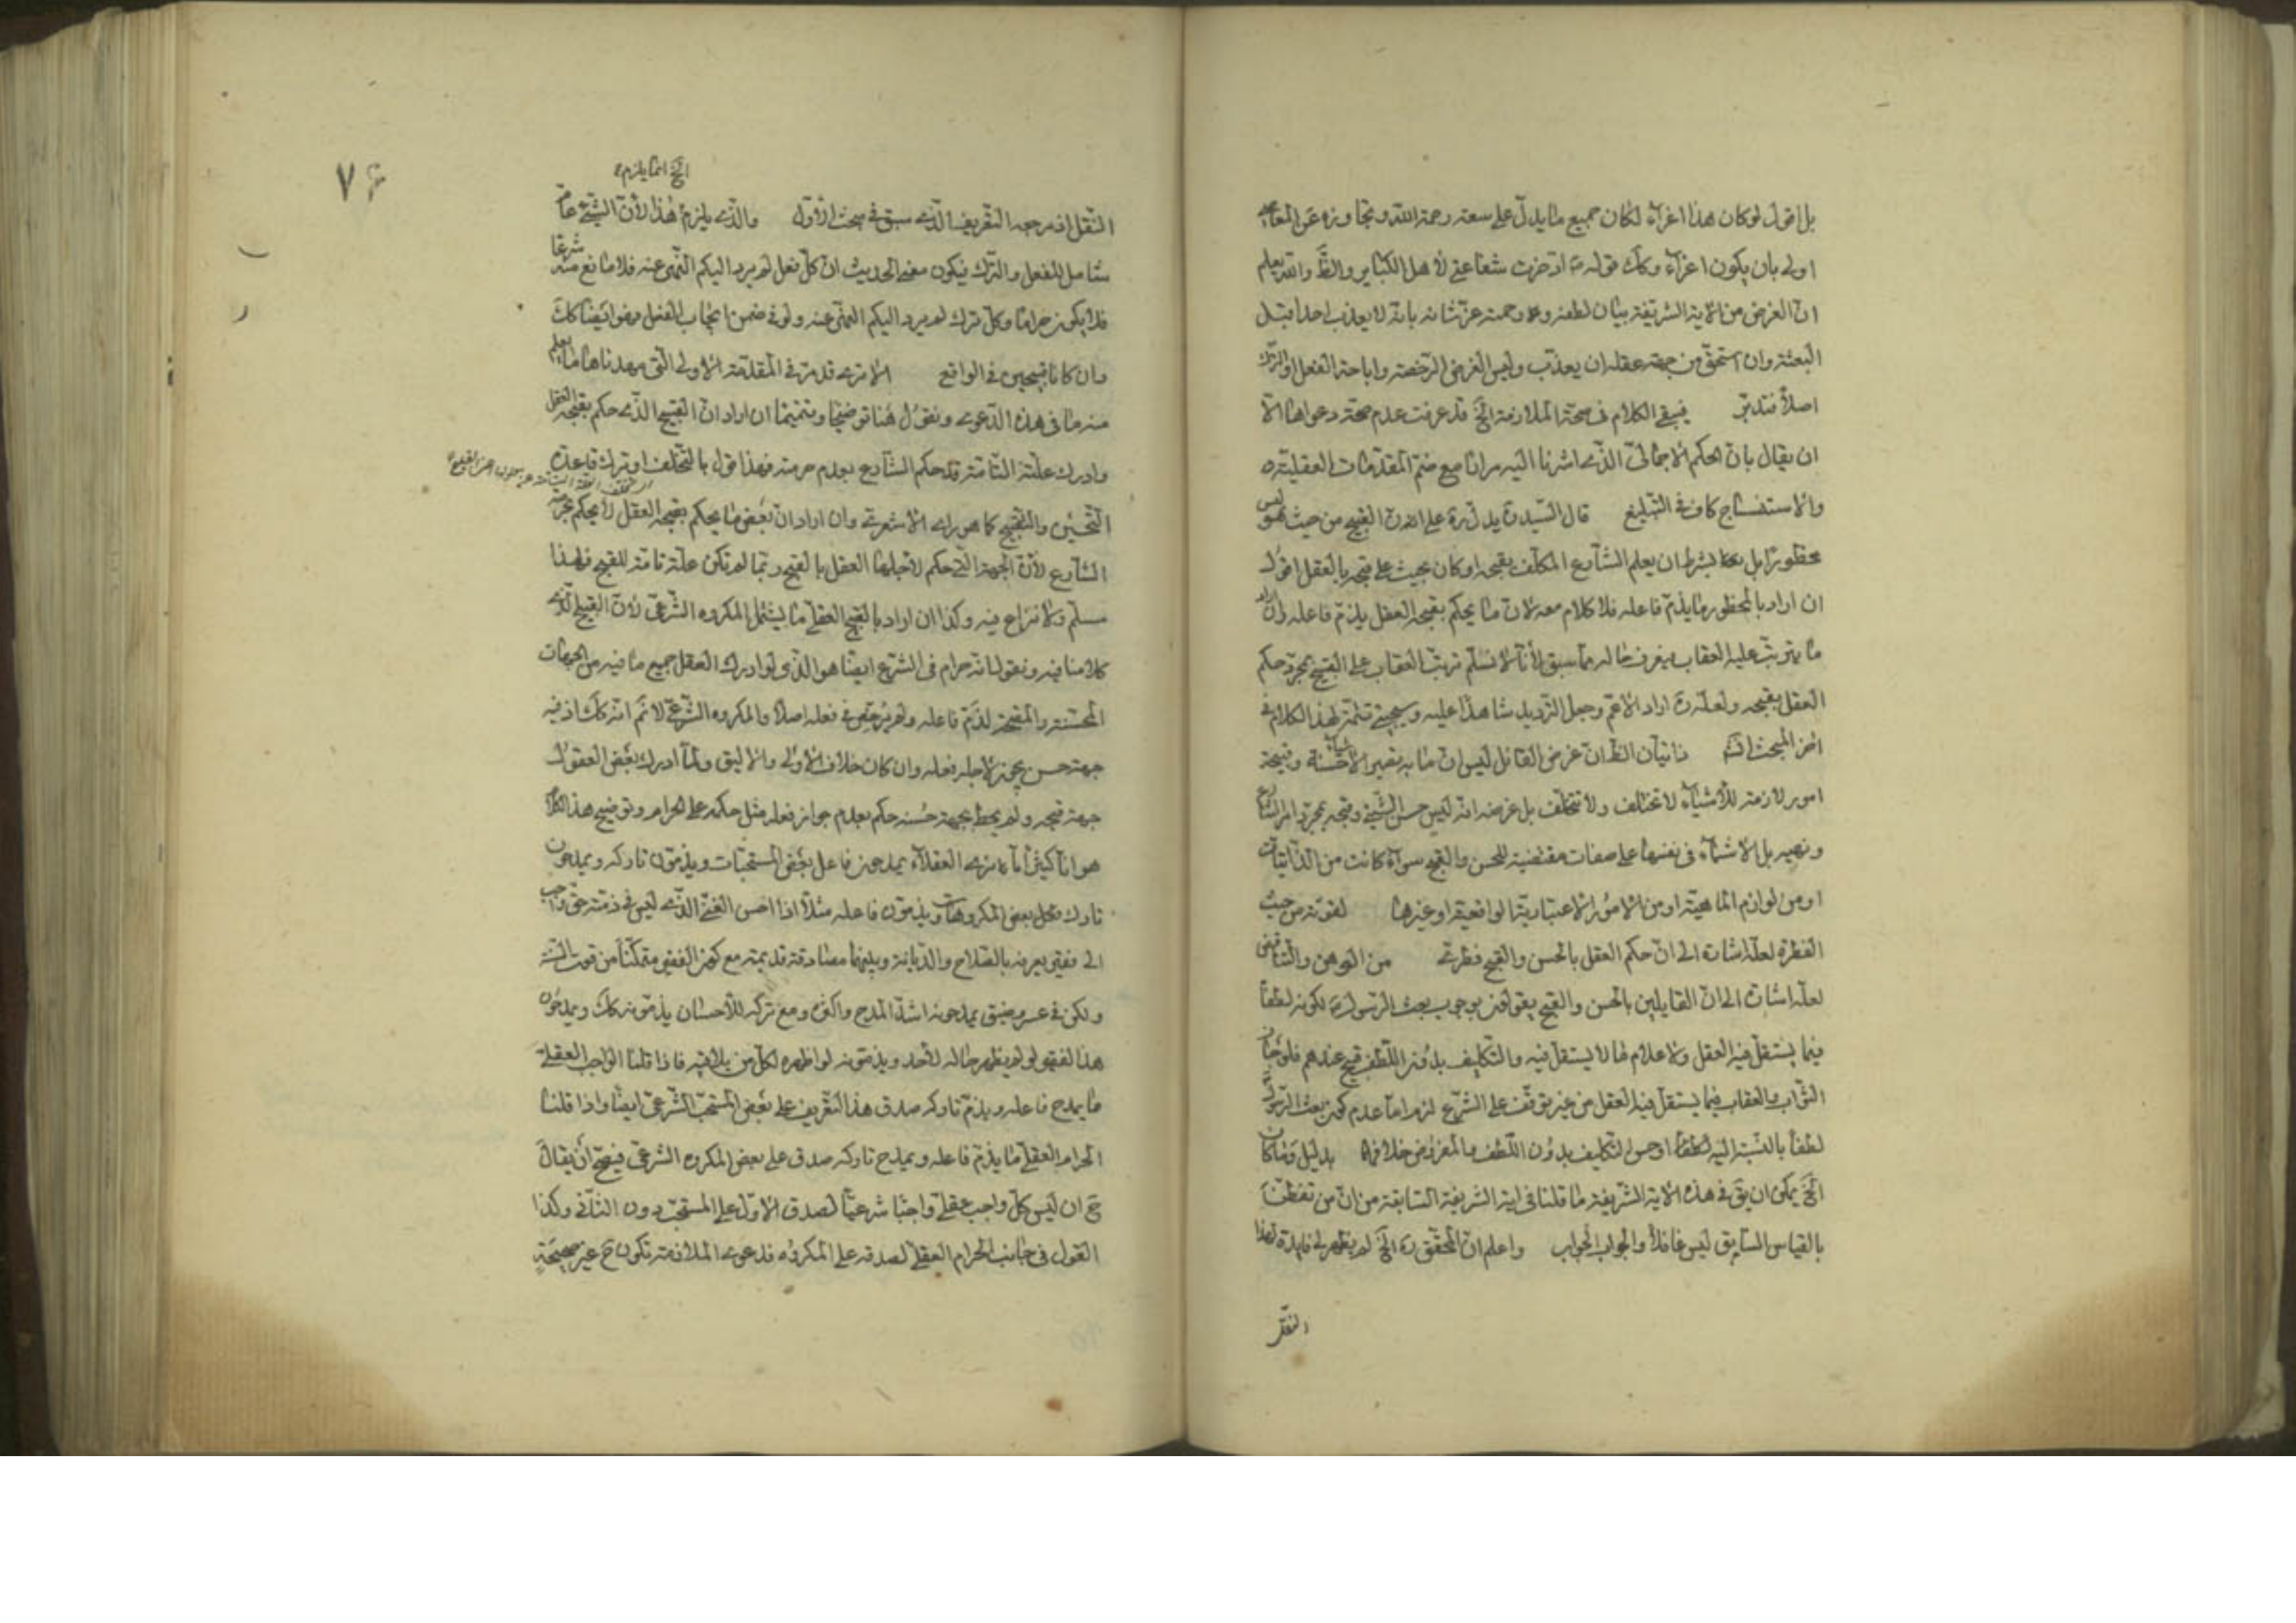 بل اقول لو كان هذا اغراء لكان جميع ما يدل على سعة رحمة الله وتجاوزه عن المعاصى
اولى بان يكون اغراء وكك قوله ادخرت شفاعتى لاهل الكبائر والظ والله يعلم
ان الغرض من الاية الشريفة بيان لطفه ورحمته عز شانه بانه لا يعذب احدا قبل
البعثة وان استحق من جهة عقله ان يعذب وليس الغرض الرخصة واباحة الفعل او الترك
اصلا فتدبر فيبقى الكلام فى صحة الملازمة الخ قد عرفت عدم صحة دعواها الا
ان يقال بان الحكم الاجمالى الذى اشرنا اليه مرارا مع ضم المقدمات العقلية
والاستفساح كاف فى التبليغ قال السيد يدل على ان القبيح من حيث هو ليس
محظورا بل بشرط ان يعلم الشارع المكلف بقبحه او كان بحيث علم قبحه بالعقل اقول
ان اراد بالمحظور ما يذم فاعله فلا كلام معه لان ما يحكم بقبحه العقل يذم فاعله وان اراد
ما يترتب عليه العقاب يعرف حاله مما سبق لانا لا نسلم ترتب العقاب على القبيح بمجرد حكم
العقل بقبحه ولعله اراد الاعم وجعل الترديد شاهدا عليه وسيجيئ تتمة لهذا الكلام فى
اخر المبحث ثانيا ان الظ ان غرض القائل ليس ان ما به يصير الاشياء حسنة وقبيحة
امور لازمة للاشياء لا تختلف ولا تتخلف بل غرضه انه ليس حسن الشيئ وقبحه بمجرد امر الشارع
ونهيه بل الاشياء فى نفسها على صفات مقتضية للحسن والقبح سواء كانت من الذاتيات
او من لوازم الماهية او من الامور الاعتبارية الواقعية او غيرها لقوته من حيث
الفطرة لعله اشارة الى ان حكم العقل بالحسن والقبح فطرى من الوهن والتناقض
لعله اشارة الى ان القايلين بالحسن والقبح يقولون بوجوب بعث الرسول لكونه لطفا
فيما يستقل فيه العقل والاعلام لما لا يستقل فيه والتكليف بدون اللطف قبيح عندهم فلو جاز
الثواب والعقاب فيما يستقل فيه العقل من غير توقف على الشرع لزم اما عدم كون بعث الرسول
لطفا بالنسبة اليه او حسن التكليف بدون اللطف والمفروض خلافها بدليل وما كان
الخ يمكن ان يق فى هذه الاية الشريفة ما قلنا فى اية الشريفة السابقة من ان من تفطن
بالقياس السابق ليس غافلا والجواب الجواب واعلم ان المحقق ره الخ لم يظهر لى فايدة لهذا
النقل
٧۶
الخ انما يلزم
النقل اذ مرجعه التعريف الذى سبق فى مبحث الاول والذى يلزم هذا لان الشيئ عام
شامل للفعل والترك فيكون معنى الحديث ان كل فعل لم يرد اليكم النهى عنه فلا مانع منه شرعا
فلا يكون حراما وكل ترك لم يرد اليكم النهى عنه ولو فى ضمن ايجاب الفعل فهو ايضا كك
وان كانا قبيحين فى الواقع الا ترى قد مر فى المقدمة الاولى التى مهدناها ما يعلم
منه ما فى هذه الدعوى ونقول هنا توضيحا وتتميما ان اراد ان القبيح الذى حكم بقبحه العقل
وادرك علته التامة قد حكم الشارع بعدم حرمته فهذا قول بالتخلف او ترك قاعدة
التحسين والتقبيح كما هو راى الاشعرى وان اراد ان بعض ما يحكم بقبحه العقل لا يحكم بحرمته
الشارع لان الجهة التى حكم لاجلها العقل بالقبح ربما لم تكن علة تامة للقبح فهذا
مسلم ولا نزاع فيه وكذا ان اراد بالقبح العقلى ما يشمل المكروه الشرعى لان القبيح الذى
كلامنا فيه ونقول انه حرام فى الشرع ايضا هو الذى لو ادرك العقل جميع ما فيه من الجهات
المحسنة والمقبحة لذم فاعله ولم يرخص فى فعله اصلا والمكروه الشرعى لا نم انه كك اذ فيه
جهة حسن يجوز لاجله فعله وان كان خلاف الاولى والاليق ولما ادرك بعض العقول
جهة قبحه ولم يحط بجهة حسنه حكم بعدم جواز فعله مثل حكمه على الحرام وتوضيح هذا الكلام
هو انا كثيرا ما نرى العقلاء يمدحون فاعل بعض المستحبات ويذمون تاركه ويمدحون
تارك بعض المكروهات ويذمون فاعله مثلا اذا احسن الغنى الذى ليس فى ذمته حق واجب
الى فقير يعرفه بالصلاح والديانة وبينهما مصادقة قديمة مع كون الفقير متمكنا من قوت السنة
ولكن فى عسر وضيق يمدحونه اشد المدح واكثره ومع تركه للاحسان يذمونه كك ويمدحون
هذا الفقير لو لم يظهر حاله لاحد ويذمونه لو اظهره لكل من يلاقيه فاذا قلنا الواجب العقلى
ما يمدح فاعله ويذم تاركه صدق هذا التعريف على بعض المستحب الشرعى ايضا واذا قلنا
الحرام العقلى ما يذم فاعله ويمدح تاركه صدق على بعض المكروه الشرعى فيصح ان يقال
ح ان ليس كل واجب عقلى واجبا شرعيا لصدق الاول على المستحب دون الثانى وكذا
القول فى جانب الحرام العقلى لصدقه على المكروه فدعوى الملازمة تكون ح غير صحيحة